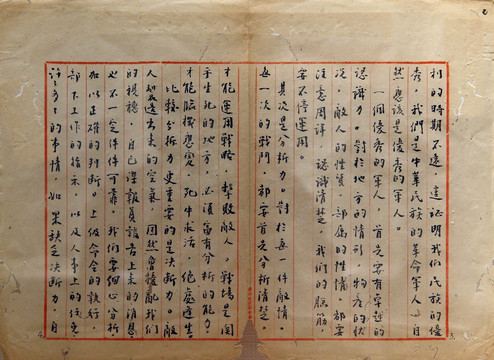 利的時期不遠，這証明我们民族的優
秀，我們是中華民族的革命軍人，自
然應該是優秀的軍人。
一個優秀的軍人，首先要有卓越的
認識力。對於地方的情形，物產的狀
況，敵人的性質，部屬的性情，都要
注意周详，認識清楚，我們的腦筋，
要不停運用。
其次是分析力。對於每一件敵情。
每一次的戰鬥，都要首先分析清楚。
才能運用戰略，擊敗敵人。戰場是閗
乎生死的地方，必須富有分析的能力，
才能臨機應變，死中求活，绝處逢生
比較分析力更重要的是决断力。敵
人製造出来的空氣，固然會擾亂我们
的視聽，自己諜報員報告上来的消息
也不一定件件可靠。我们要细心分析。
加以正確的判断。上级命令的執行，
部下工作的指示，以及人事上的任免
許多的事情，如果缺乏决断力，自